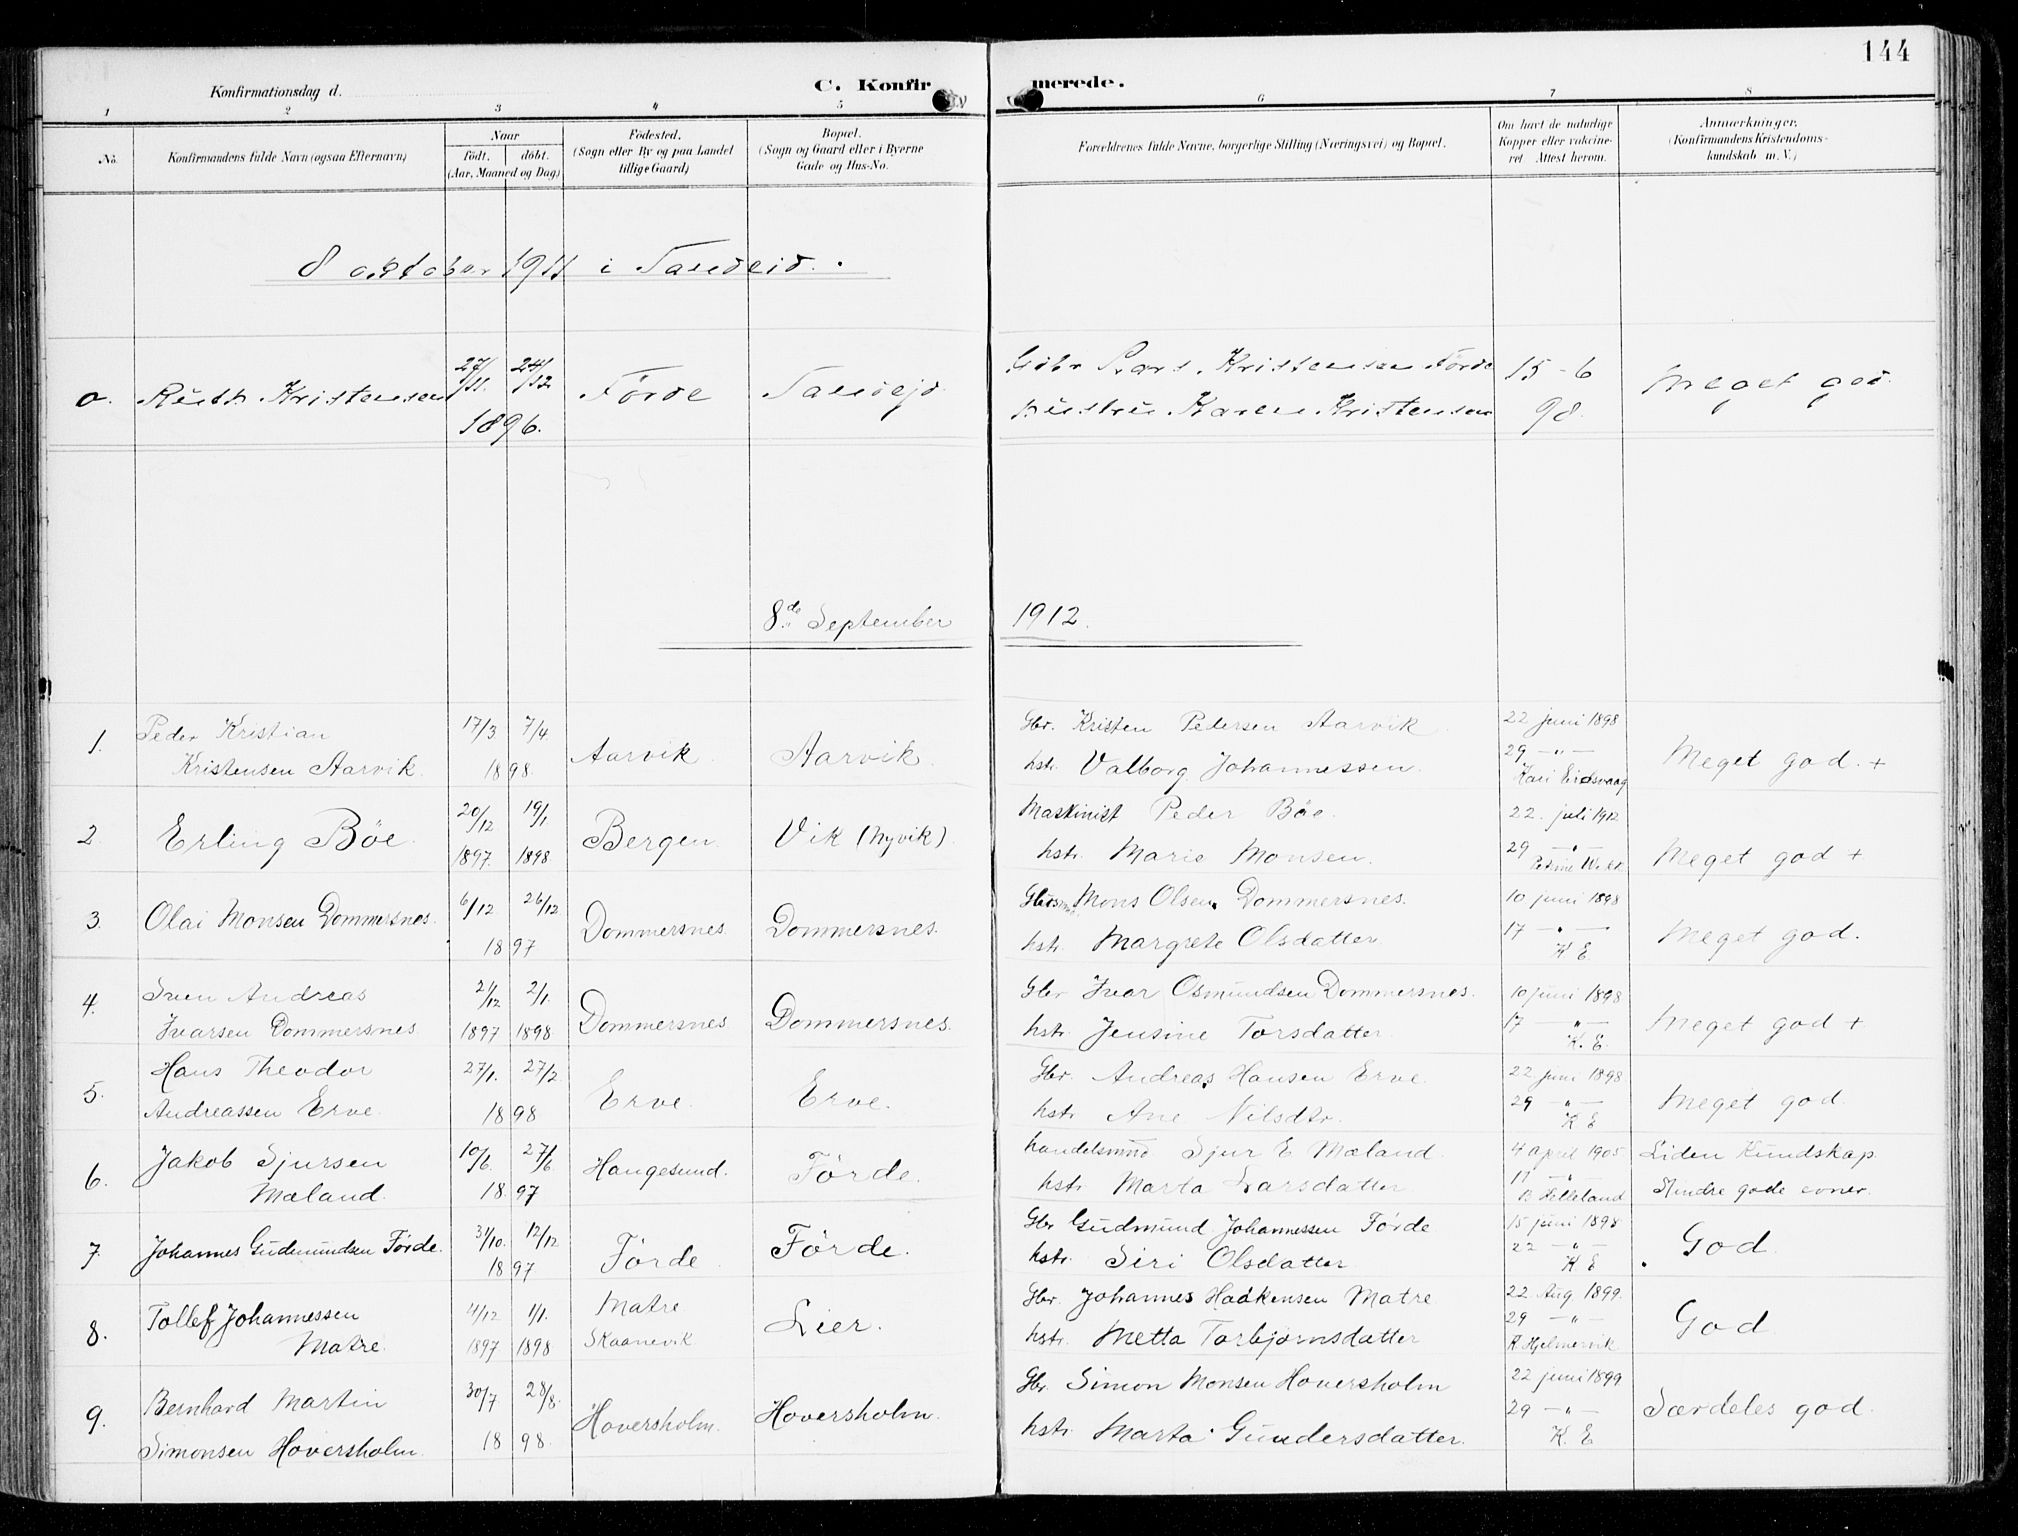 144
Konfirmationsdag d.
C. Konfirmerede.
1 2 3 4 5 6 7 8
No.
Konfirmandens fulde Navn (ogsaa Efternavn)
Naar
født. døbt.
(Aar, Maaned og Dag)
Fødested.
(Sogn eller By og paa Landet
tillige Gaard)
Bopæl.
(Sogn og Gaard eller i Byerne
Gade og Hus-No.
Forældrenes fulde Navne, borgerlige Stilling (Næringsvei) og Bopæl.
Om havt de naturlige
Kopper eller vakcine-
ret. Attest herom.
Anmærkninger.
(Konfirmandens Kristendoms-
kundskab m. V.)
8 oktober 1911 i Sandeid.
a. Ruth Kristensen 27/11. 24/12 1896. Förde Sandejd
Gbr Lars Kristensen Förde
hustru Karen Kristensen
15-6
98.
Meget god.
8de September 1912.
1. Peder Kristian
Kristensen Aarvik.
17/3 7/4 1898.
Aarvik. Aarvik.
Gbr. Kristen Pedersen Aarvik.
hstr. Valborg Johannessen.
22 juni 1898
29 -"-
Kari Eidsvaag
Meget god. +
2. Erling Böe.
20/12 1897. 19/1 1898
Bergen. Vik (Nyvik)
Maskinist Peder Böe.
hstr. Marie Monsen.
22. juli 1912
29 -"-
Meget god +
3. Olai Monsen Dommersnes.
6/12 26/12 1897
Dommersnes. Dommersnes.
Mons Olsen Dommersnes.
hstr. Margrete Olsdatter
10 juni 1898
17 -"-
K E
Meget god.
4. Sven Andreas
Ivarsen Dommersnes
1897 2/1. 1898
Dommersnes. Dommersnes.
Gbr Ivar Osmundsen Dommersnes.
hstr. Jensine Torsdatter.
10 juni 1898
17 -"-
K. E.
Meget god +
5. Hans Theodor
Andreassen Erve.
27/1. 27/2 1898
Erve. Erve.
Gbr. Andreas Hansen Erve.
hstr. Ane Nilsdtr.
22 juni 1898
29 -"-
K E
Meget god.
6. Jakob Sjursen
Mæland.
10/6. 27/6 1897
Haugesund. Förde.
handelsmnd Sjur E Mæland.
hstr. Marta Larsdatter.
4 april 1905
11 -"-
B Helleland
Liden Kundskap.
Mindre gode evner.
7. Johannes Gudmundsen Förde.
31/10. 12/12 1897
Förde. Förde.
Gbr Gudmund Johannessen Förde
hstr. Siri Olsdatter.
15 juni 1898
22 -"-
K E
God.
8. Tollef Johannessen
Matre.
4/12 1897 1/1. 1898
Matre
Skaanevik
Lier.
Gbr. Johannes Haakensen Matre
hstr. Metta Torbjørnsdatter
22 Aug 1899.
29 -"-
R. Hjelmervik
God
9. Bernhard Martin
Simonsen Hoversholm.
30/7 28/8. 1898.
Hoversholm. Hoversholm.
Gbr. Simon Monsen Hoversholm
hstr. Marta Gundersdatter.
22 juni 1899
29 -"-
K. E
Særdeles god.